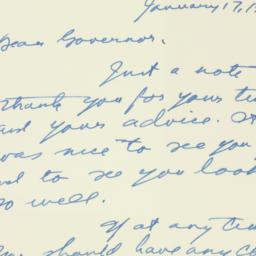 January 17, 1
Dear Governor,
Just a note
thank you for your
and your advice. It
was nice to see you
and to see you look
so well.
If at any
you should have any